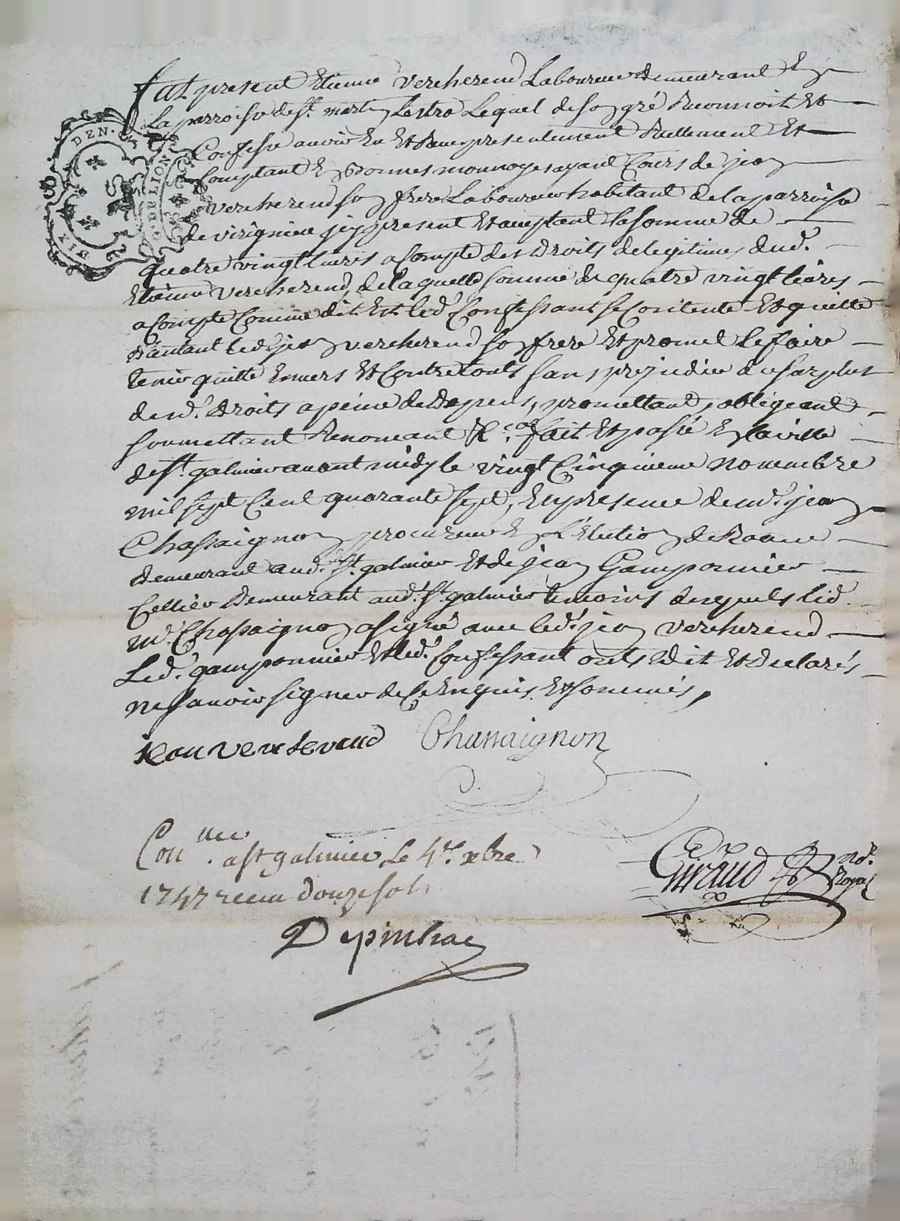 fut present Etienne vercherend Laboureur demeurant En
La parroisse de st. martin Lestra Lequel de son gré Reconnoit Et
DIX DEN.
G. DE LION
Confesse avoir Eu Et Receu presentement Reellement Et
Comptant En bonnes monnoyes ayant Cours de jean
vercherend son frere Laboureur habitant de la parroisse
de virignieu jcy present Et aceptant la somme de
quatre vingt livres a Compte des Droits de legitimes dud.
Etienne vercherend, de laquelle somme de quatre vingt livres
a Compte Comme dit Est led. Confessant se Contente Et quitte
d'autant led. jean vercherend son frere Et promet le faire
tenir quitte Envers Et Contre touts sans prejudice du surplus
desd. droits a peine de Depens, promettant, obligeant
soumettant Renonçant &c. fait Et passé En la ville
de st. galmier avant midy le vingt Cinquieme novembre
mil sept Cent quarante sept, En presence de me. jean
Chassaignon procureur En l'Election de Roanne
demeurant aud. st. galmier Et de jean Gamponnier
Cellier Demeurant aud. st. galmier temoins desquels led.
me. Chassaignon a signé avec led. jean vercherend
Led. gamponnier Et led. Confessant onts dit Et declarés
ne savoir signer de Ce Enquis Et sommés,
jean vercherend Chassaignon
Con.llee a st galmier le 4e. xbre
1747 receu douze sols
Giraud no.re Royal
Depinhac